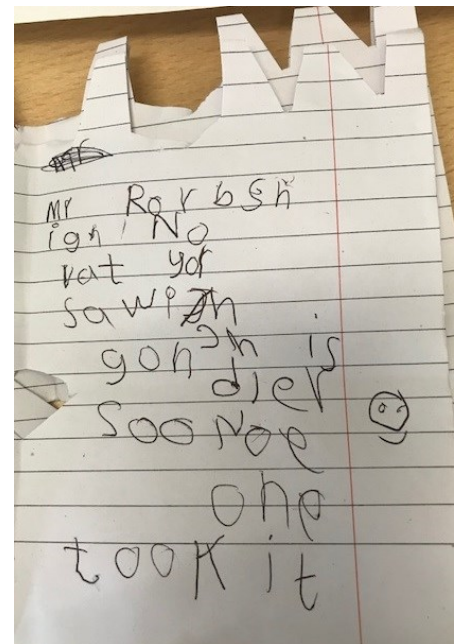 Mr Rorbsh
ign No
vat yor
sawi n
gon in is
dier
sooNoe
one
took it